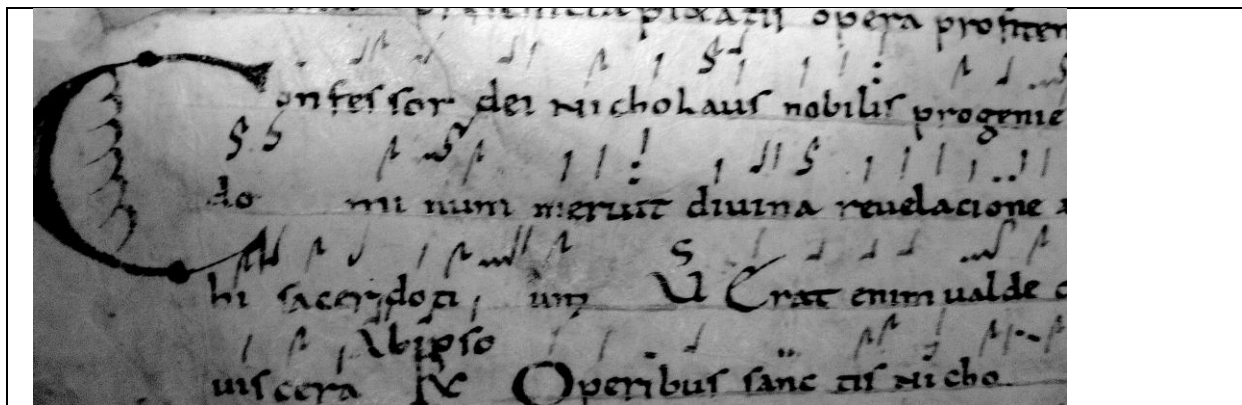 opera profiten
Confessor dei Nicholaus nobilis progenie
do mi num meruit diuina reuelacione a
hi sacerdoti um V Erat enim ualde c
Ab ipso
uiscera R Operibus sanc tis Nicho